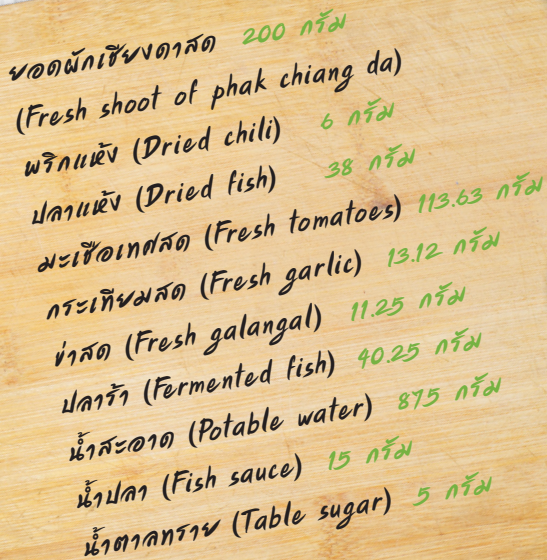 ยอดผักเชียงดาสด 200 กรัม
(Fresh shoot of phak chiang da)
พริกแห้ง (Dried chili) 6 กรัม
ปลาแห้ง (Dried fish) 38 กรัม
มะเขือเทศสด (Fresh tomatoes) 113.63 กรัม
กระเทียมสด (Fresh garlic) 13.12 กรัม
ข่าสด (Fresh galangal) 11.25 กรัม
ปลาร้า (Fermented fish) 40.25 กรัม
น้ำสะอาด (Potable water) 875 กรัม
น้ำปลา (Fish sauce) 15 กรัม
น้ำตาลทราย (Table sugar) 5 กรัม